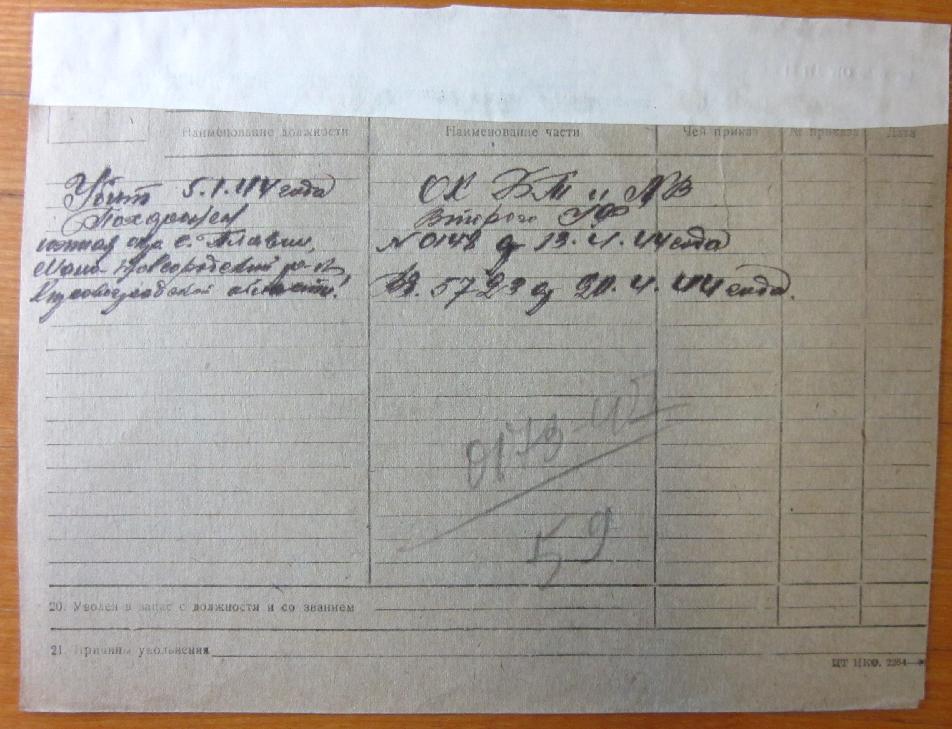 Наименование должности Наименование части Чей приказ № приказа Дата
Убит 5.1.44 года ОК БТ и МВ
Похоронен Второго УФ
южная окр. с. Плавни № 0148 от 13.4.44 года
Мало-
Кировоградской области. Вх. 5723 от 20.4.44 года.
0178-45
59
20. Уволен в запас с должности и со званием
21. Причины увольнения
ЦТ НКО. 2264